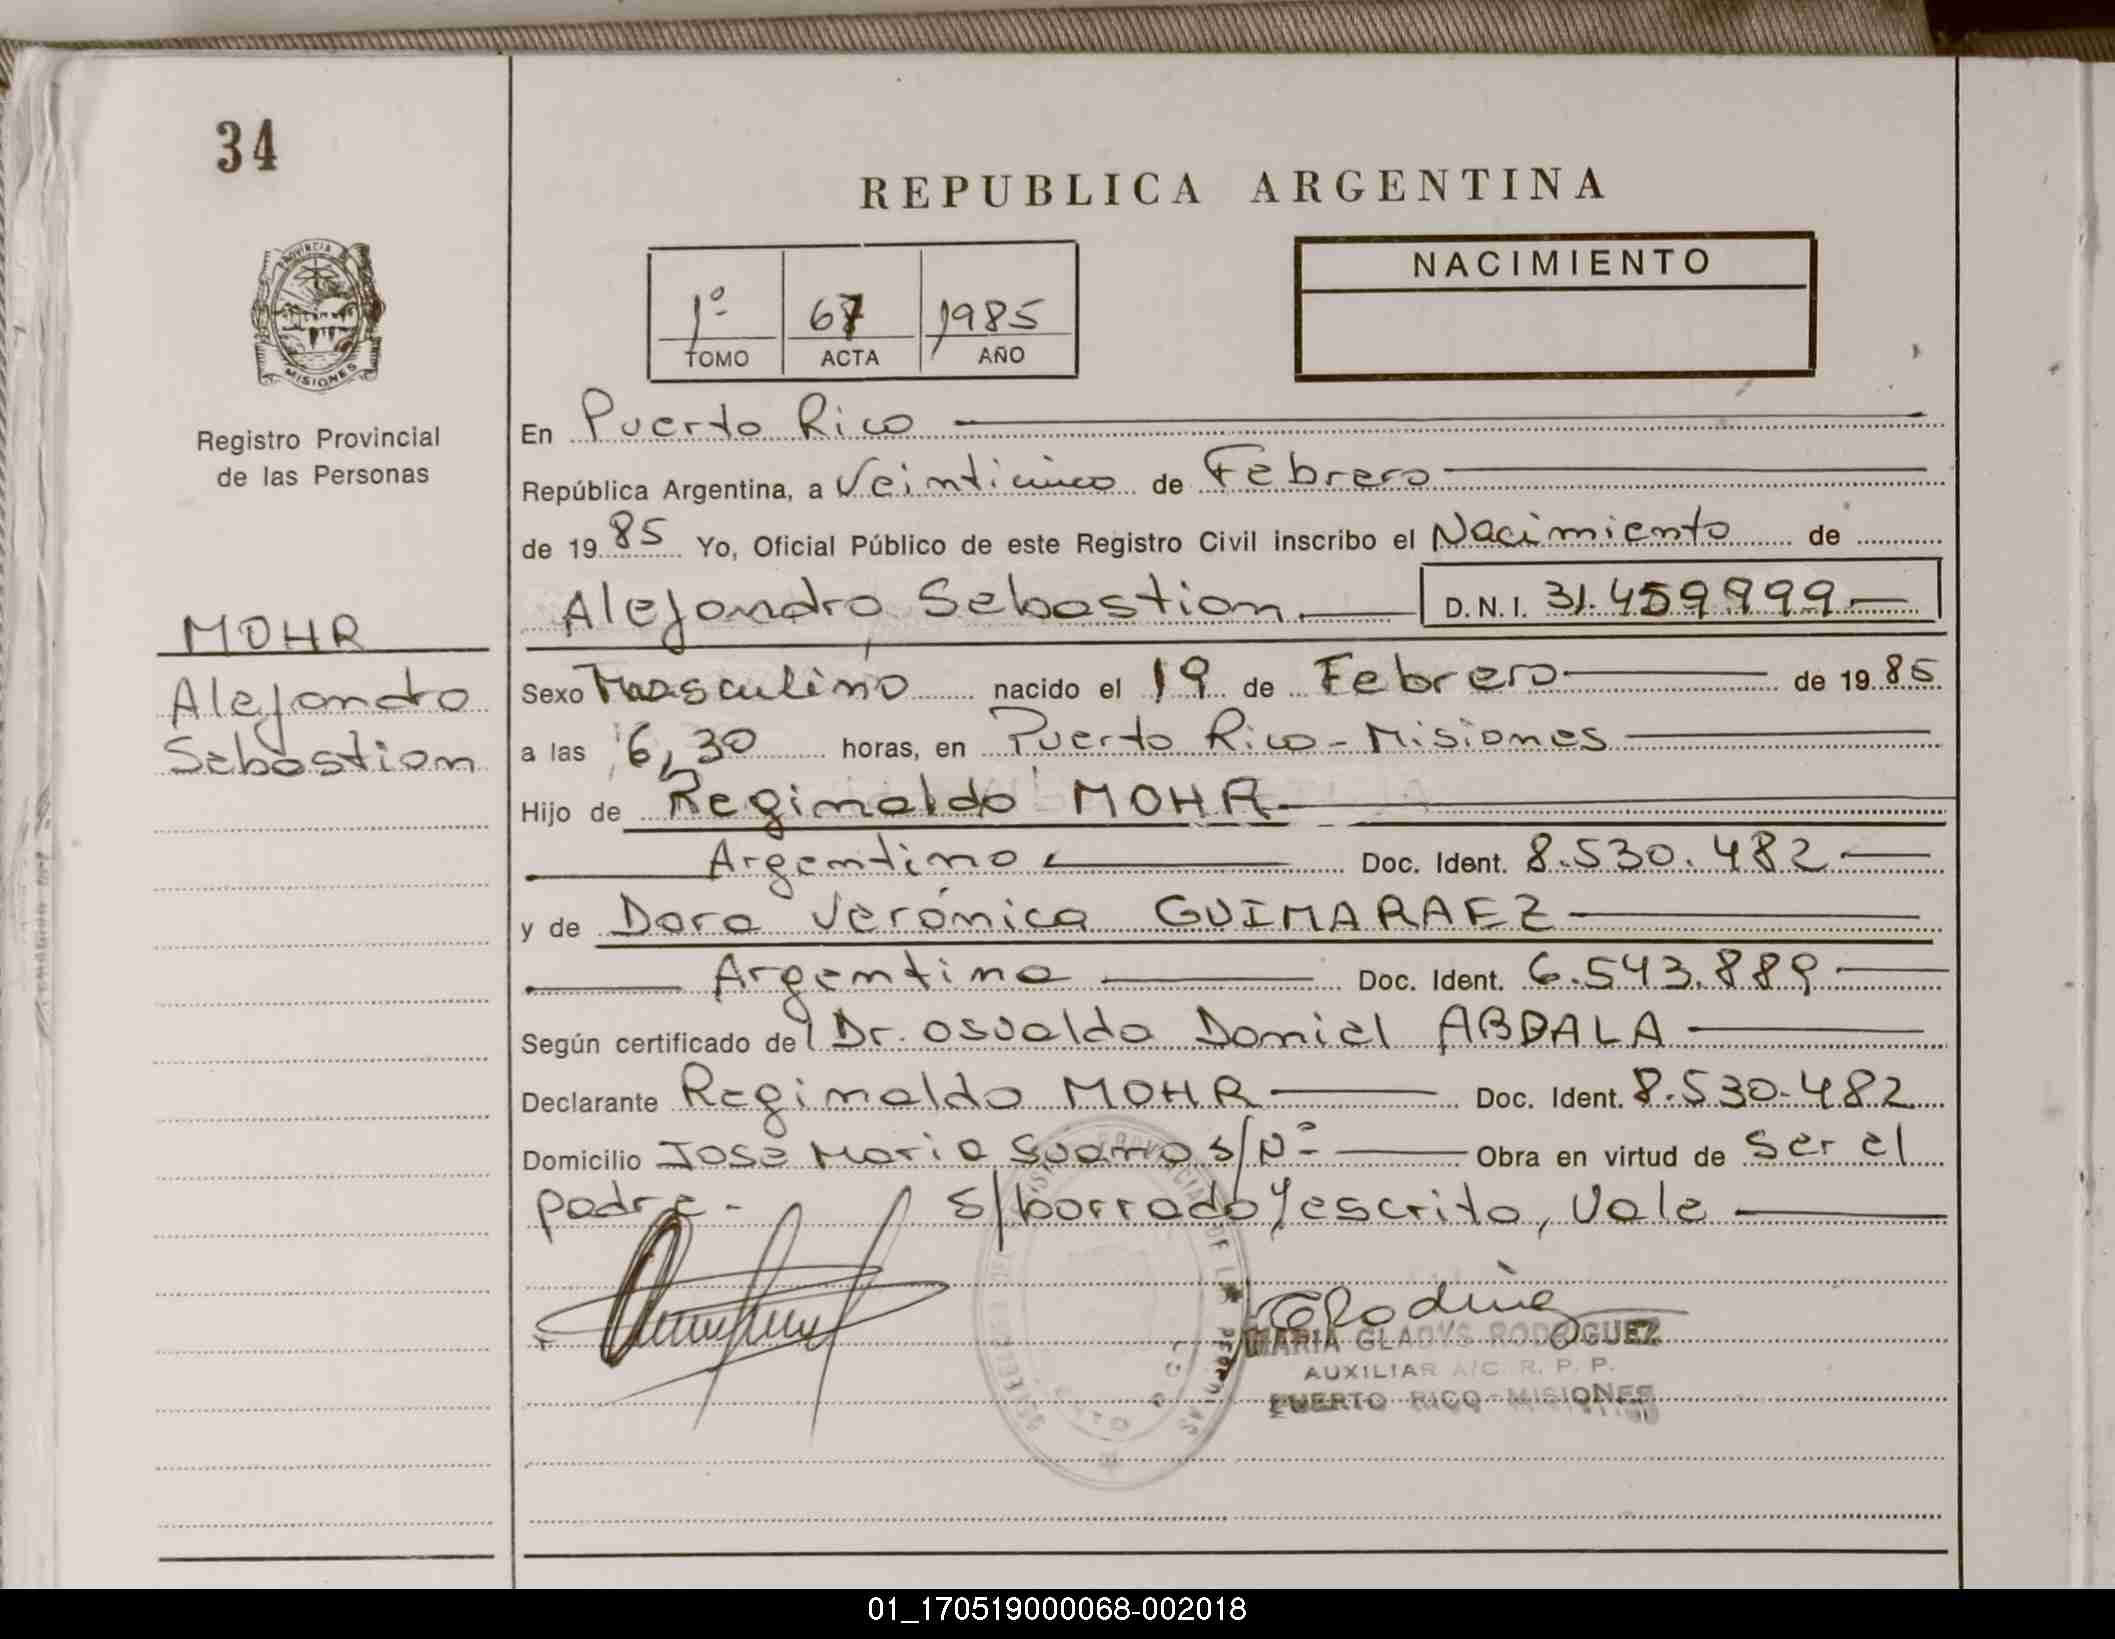 34
REPUBLICA ARGENTINA
PROVINCIA DE
MISIONES
Registro Provincial
de las Personas
1º 67 1985
TOMO ACTA AÑO
NACIMIENTO
En Puerto Rico
República Argentina, a Veinticinco de Febrero
de 1985 Yo, Oficial Público de este Registro Civil inscribo el Nacimiento de
Alejandro Sebastian D.N.I. 31.459.999
MOHR
Alejandro
Sebastian
Sexo Masculino nacido el 19 de Febrero de 1985
a las 6,30 horas, en Puerto Rico - Misiones
Hijo de Reginaldo MOHR
Argentino Doc. Ident. 8.530.482
y de Dora Verónica GUIMARAEZ
Argentina Doc. Ident. 6.543.889
Según certificado del Dr. Osvaldo Daniel ABDALA
Declarante Reginaldo MOHR Doc. Ident. 8.530.482
Domicilio José Maria s/Nº Obra en virtud de ser el
padre - s/borrado y escrito, Vale
MARIA GLADYS RODRIGUEZ
AUXILIAR A/C R. P. P.
PUERTO RICO - MISIONES
01_170519000068-002018